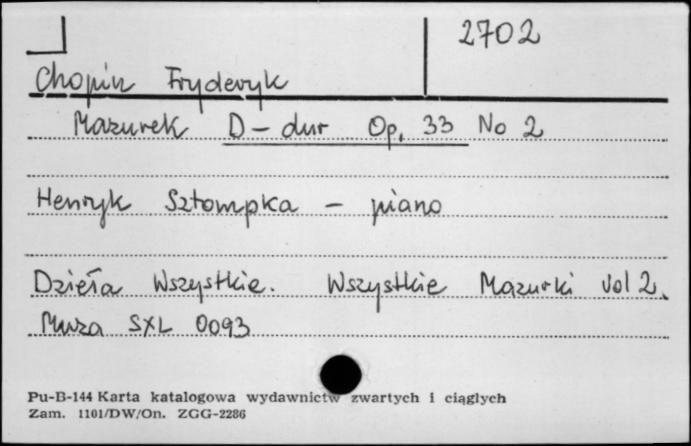 2702
Chopin Fryderyk
Mazurek D-dur Op. 33 No 2
Henryk Sztompka - piano
Dzieła Wszystkie. Wszystkie Mazurki vol 2.
Muza SXL 0093
Pu-B-144 Karta katalogowa wydawnictw zwartych i ciągłych
Zam. 1101/DW/On. ZGG-2286